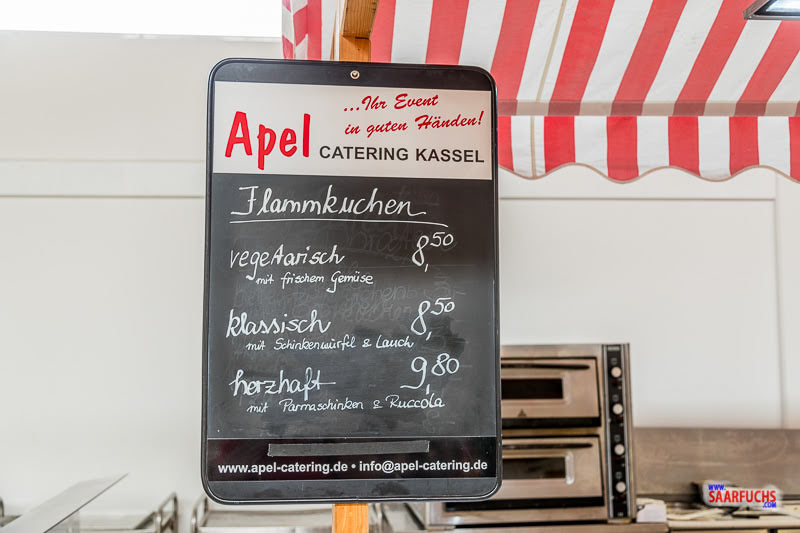 ...Ihr Event
in guten Händen!
Apel CATERING KASSEL
Flammkuchen
vegetarisch 8,50
mit frischem Gemüse
klassisch 8,50
mit Schinkenwürfl & Lauch
herzhaft 9,80
mit Parmaschinken & Ruccola
www.apel-catering.de • info@apel-catering.de
WWW.
SAARFUCHS
.COM